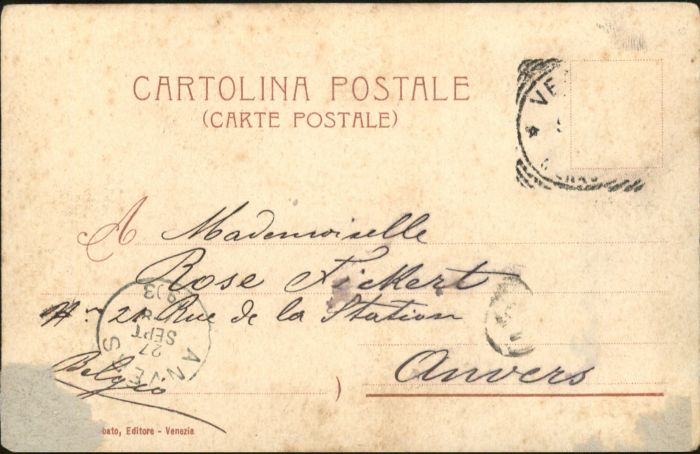 CARTOLINA POSTALE
(CARTE POSTALE)
VE
A Mademoiselle
Rose Fickert
Nº 21 Rue de la Station
Anvers
Belgio
ANVERS
27
SEPT
1903
bato, Editore - Venezia